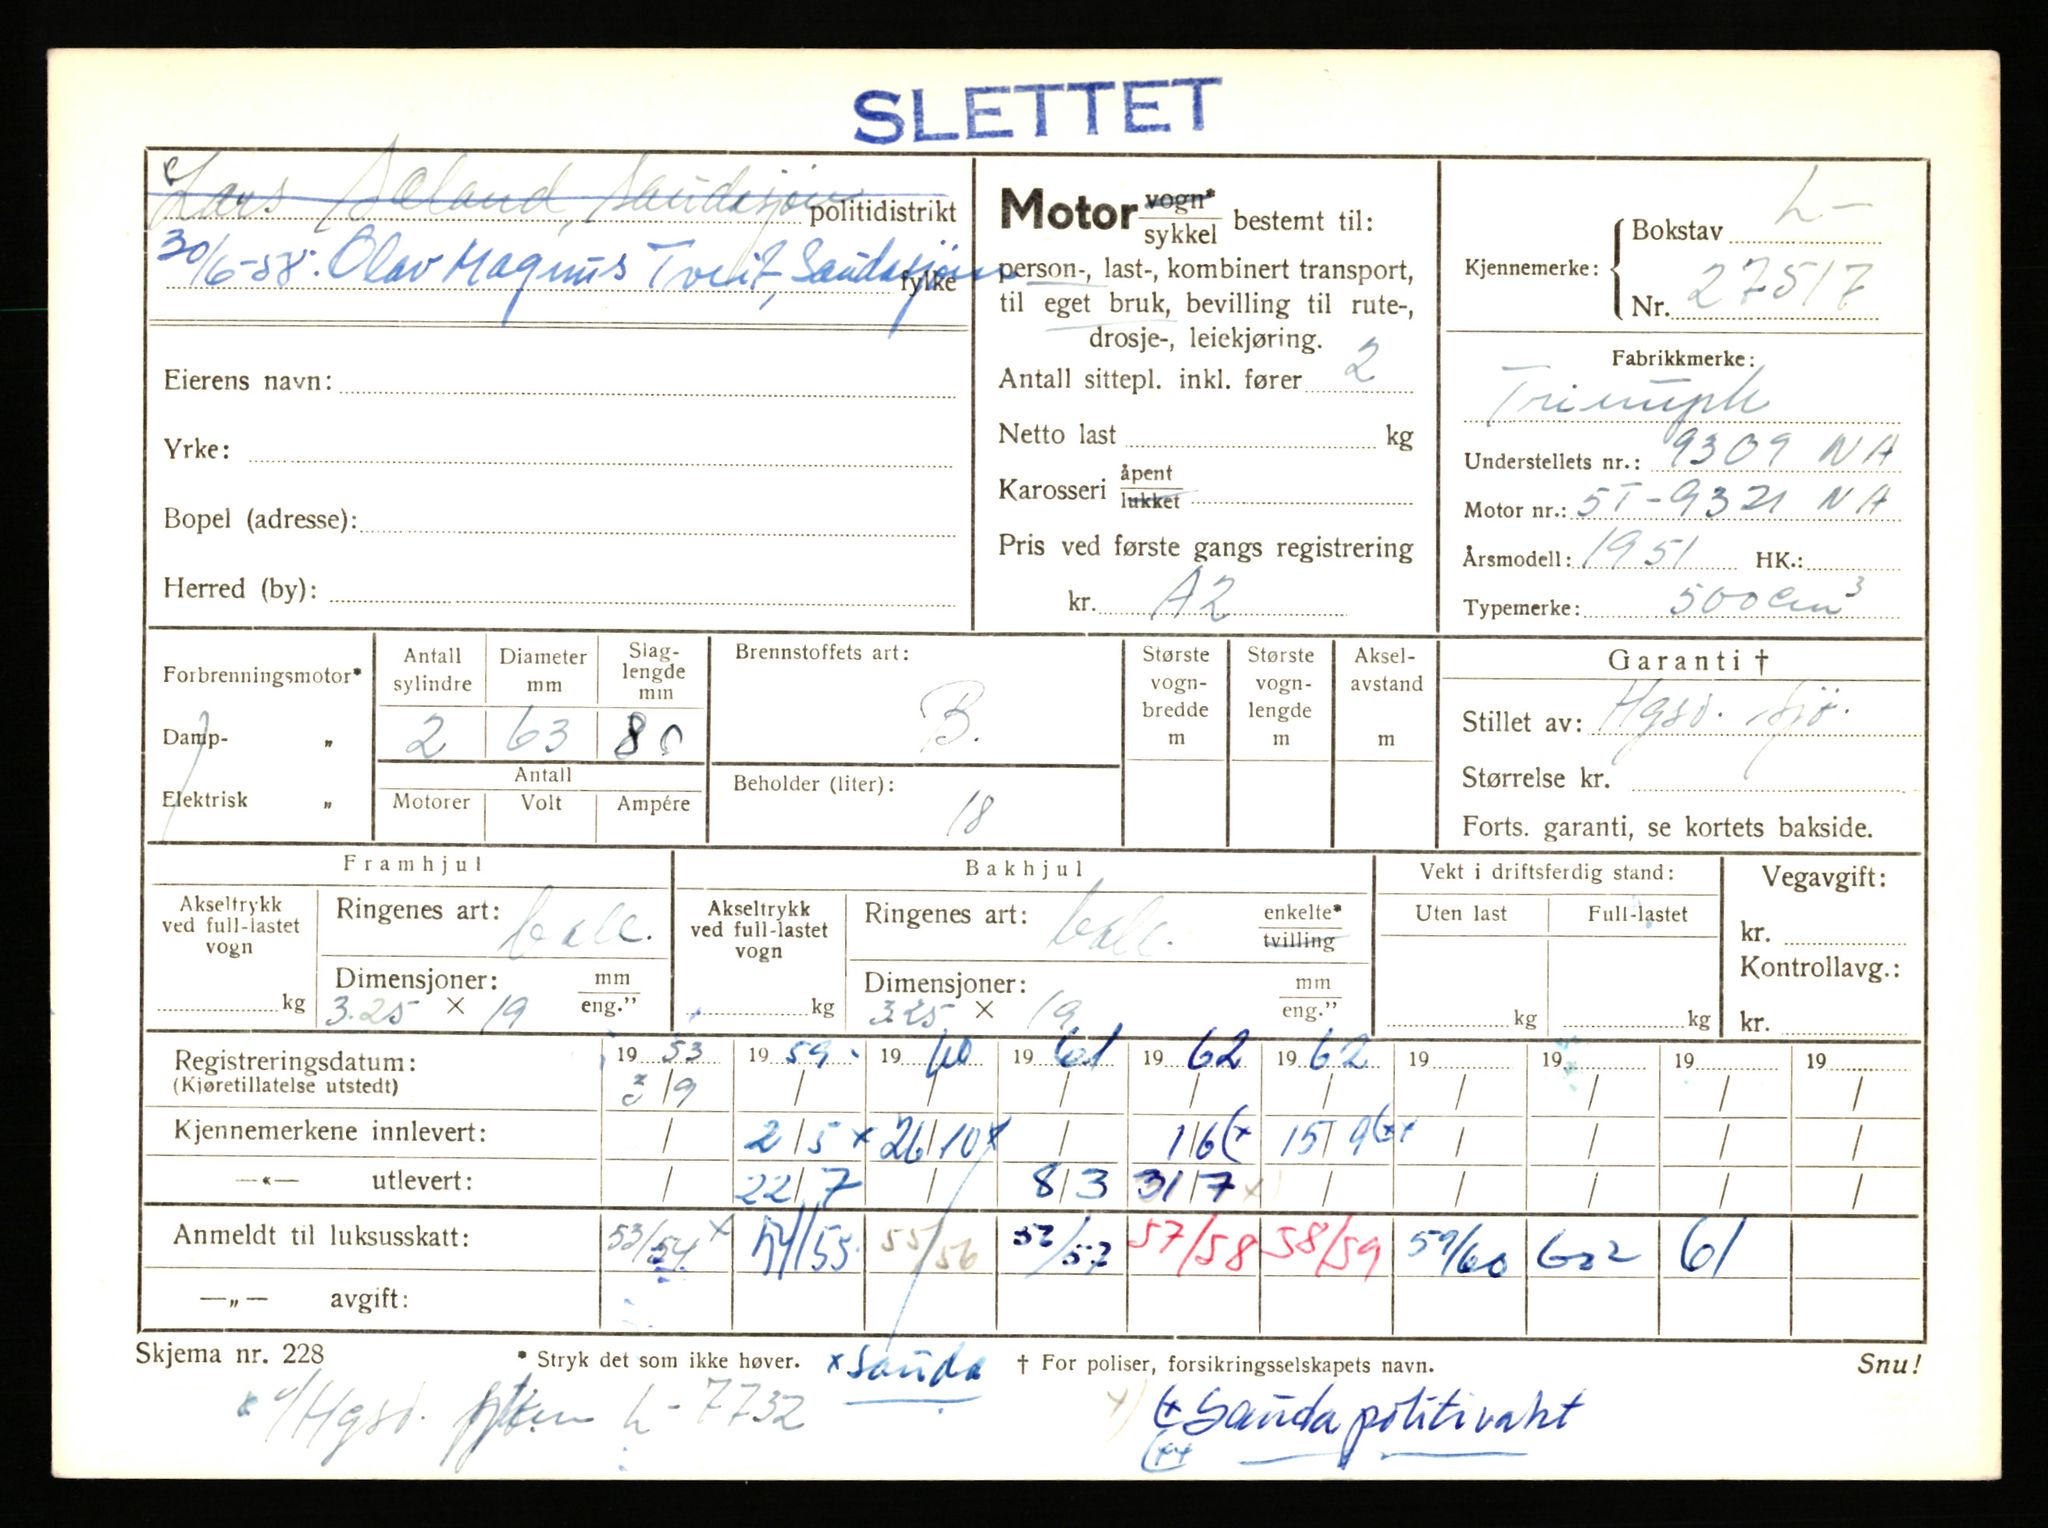 SLETTET
Lars Sæland, Saudasjøen politidistrikt
30/6-58. Olav Magnus Tveit, Saudasjøen fylke
Eierens navn:
Yrke:
Bopel (adresse):
Herred (by):
Motor vogn* / sykkel bestemt til:
person-, last-, kombinert transport,
til eget bruk, bevilling til rute-,
drosje-, leiekjøring.
Antall sittepl. inkl. fører 2
Netto last kg
Karosseri åpent / lukket
Pris ved første gangs registrering
kr. A2
Kjennemerke: Bokstav L-
Nr. 27517
Fabrikkmerke:
Triumph
Understellets nr.: 9309 NA
Motor nr.: 5T-9321 NA
Årsmodell: 1951 HK.:
Typemerke: 500 cm³
Forbrenningsmotor*
Damp- „
Elektrisk „
Antall sylindre 2
Diameter mm 63
Slaglengde mm 80
Antall
Motorer Volt Ampére
Brennstoffets art: B.
Beholder (liter): 18
Største vogn-bredde m
Største vogn-lengde m
Aksel-avstand m
Garanti †
Stillet av: Hgsd. Sjø.
Størrelse kr.
Forts. garanti, se kortets bakside.
Framhjul
Akseltrykk ved full-lastet vogn kg
Ringenes art: ball.
Dimensjoner: mm / eng."
3.25 × 19
Bakhjul
Akseltrykk ved full-lastet vogn kg
Ringenes art: ball. enkelte* / tvilling
Dimensjoner: mm / eng."
3.25 × 19
Vekt i driftsferdig stand:
Uten last Full-lastet
kg kg
Vegavgift:
kr.
Kontrollavg.:
kr.
Registreringsdatum: 1953 1959 1960 1961 1962 1962 19 19 19 19
(Kjøretillatelse utstedt) 3/9 / / / / / / / / /
Kjennemerkene innlevert: / 2/5 x 26/10 x / 1/6 (x 15/9 (xx / / / /
—«— utlevert: / 22/7 / 8/3 31/7 x) / / / / /
Anmeldt til luksusskatt: 53/54 x 54/55 55/56 57/58 58/59 59/60 61
—„— avgift:
Skjema nr. 228 * Stryk det som ikke høver. x Sauda † For poliser, forsikringsselskapets navn. Snu!
x Hgsd. L-7732
x) (x Sauda politivakt
(xx